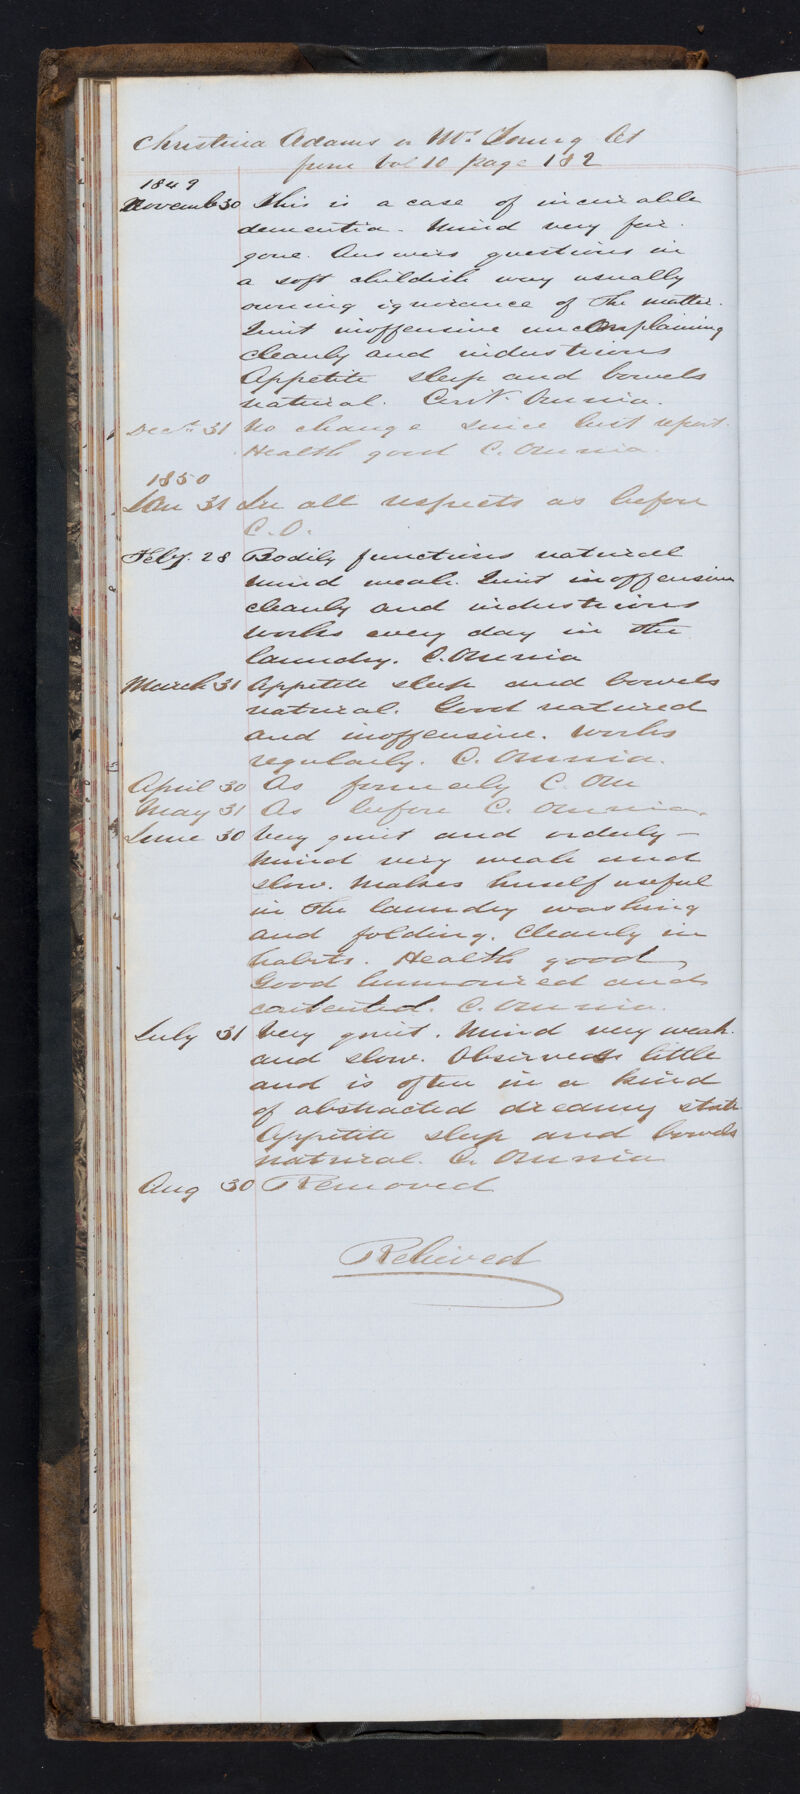 Christina Adams or Mrs Young Ct
from Vol 10 page 182
1849
November 30 This is a case of incurable
dementia. Mind very far
gone. Answers questions in
a soft childish way usually
owning ignorance of the matter.
Quiet inoffensive uncomplaining
cleanly and industrious
Appetite sleep and bowels
natural. Cont. Omnia.
Decr. 31 No change since last report.
Health good C. Omnia.
1850
Jan 31 In all respects as before
C. O.
Feby. 28 Bodily functions natural
mind weak. Quiet inoffensive
cleanly and industrious
works every day in the
laundry. C. Omnia
March 31 Appetite sleep and bowels
natural. Good natured
and inoffensive. Works
regularly. C. Omnia.
April 30 As formerly C. Om
May 31 As before C. Omnia.
June 30 Very quiet and orderly –
Mind very weak and
slow. Makes herself useful
in the laundry washing
and folding. Cleanly in
habits. Health good
Good humoured and
contented. C. Omnia.
July 31 Very quiet. Mind very weak
and slow. Observes little
and is often in a kind
of abstracted dreamy state
Appetite sleep and bowels
natural. C. Omnia
Aug 30 Removed
Relieved